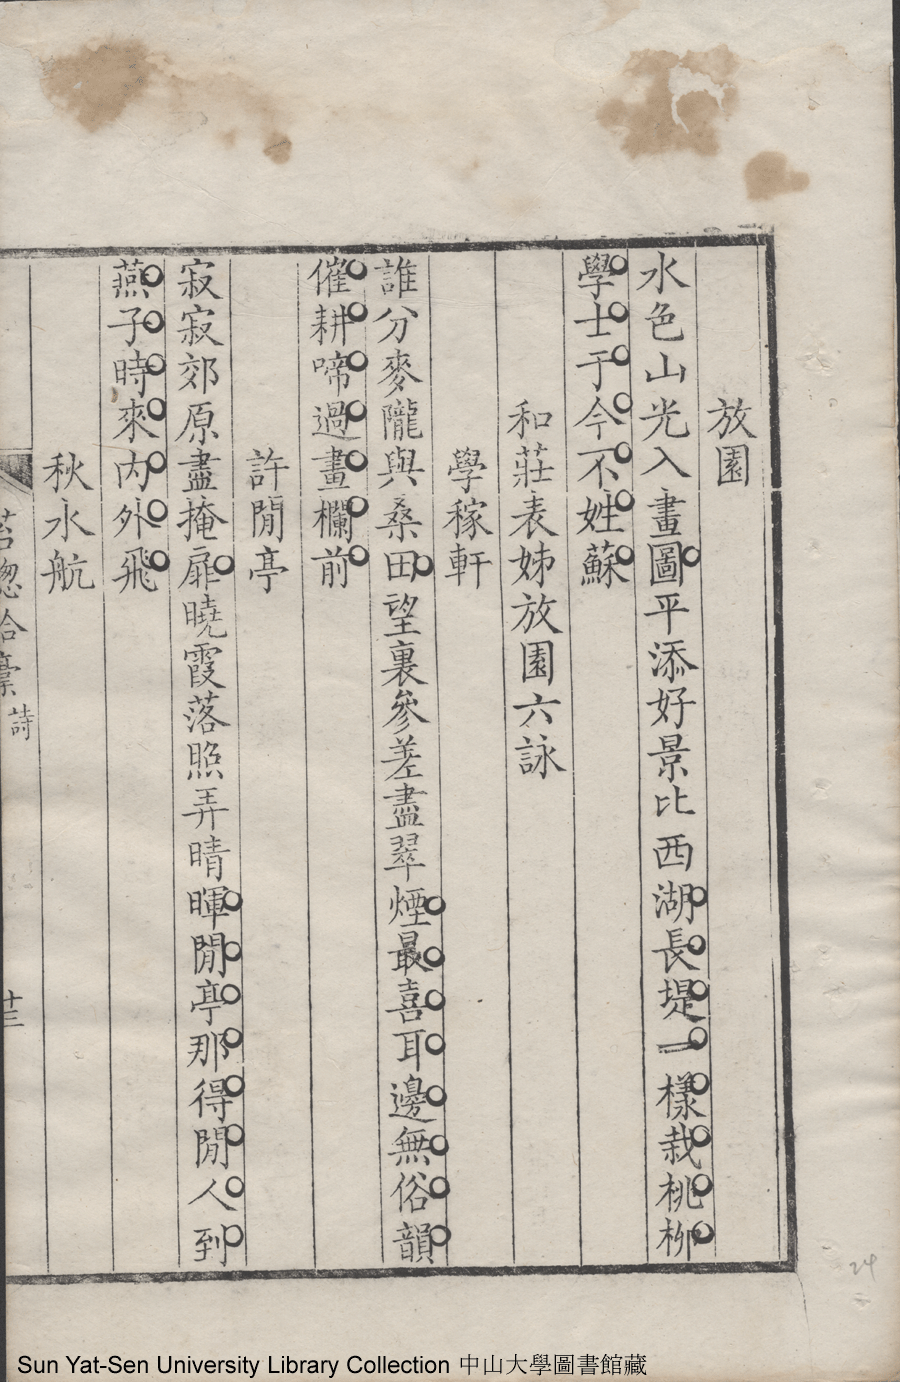 放園
水色山光入畫圖平添好景比西湖長堤一樣栽桃柳
學士于今不姓蘇
和莊表姊放園六詠
學稼軒
誰分麥隴與桑田望裏參差盡翠煙最喜耳邊無俗韻
催耕啼過畫欄前
許閒亭
寂寂郊原盡掩扉曉霞落照弄晴暉閒亭那得閒人到
燕子時來內外飛
秋水航
詩
十三
24
Sun Yat-Sen University Library Collection 中山大學圖書館藏